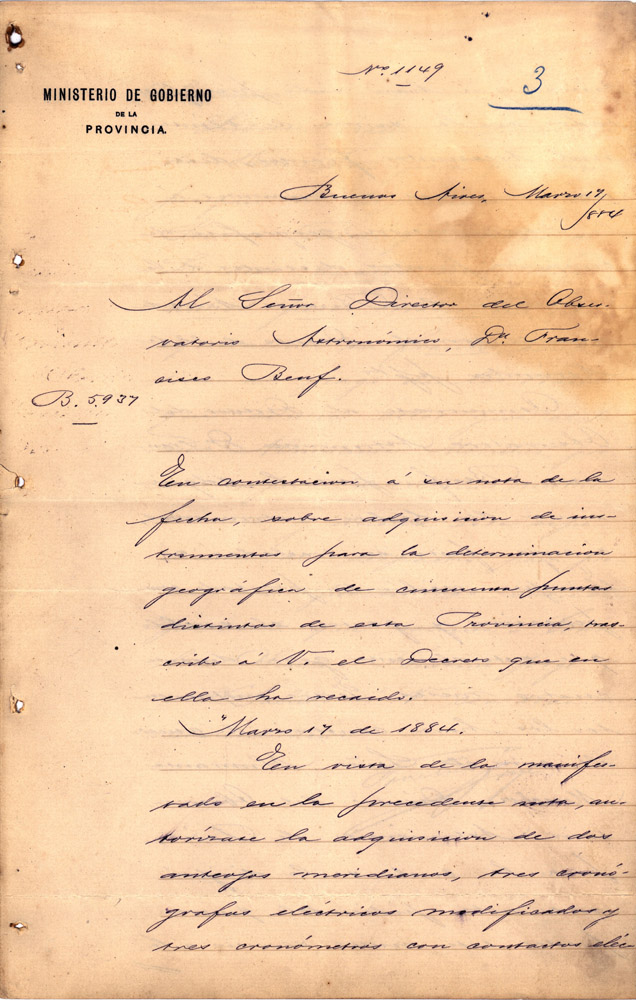 Nro. 1149
3
MINISTERIO DE GOBIERNO
DE LA
PROVINCIA.
Buenos Aires, Marzo 17/884
Al Señor Director del Obser-
vatorio Astronómico, Dn. Fran-
cisco Beuf.
B. 5.937
En contestacion á su nota de la
fecha, sobre adquisicion de ins-
trumentos para la determinacion
geográfica de cincuenta puntos
distintos de esta Provincia, tras-
cribo á V. el Decreto que en
ella ha recaido.
"Marzo 17 de 1884.
En vista de lo manifes-
tado en la precedente nota, au-
torízase la adquisicion de dos
anteojos meridianos, tres cronó-
grafos eléctricos modificados y
tres cronómetros con contactos eléc-